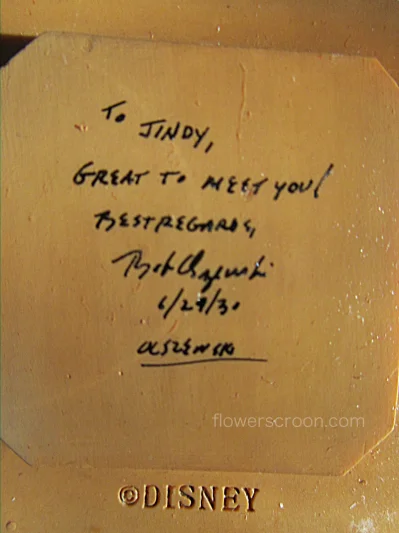 To JINDY,
GREAT TO MEET YOU!
BEST REGARDS,
Bob Olszewski
6/29/30
OLSZEWSKI
flowerscroon.com
©DISNEY